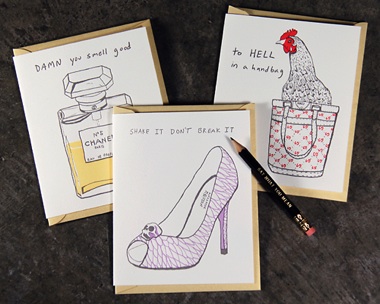 DAMN you smell good
N°5
CHANEL
PARIS
to HELL
in a handbag
SHAKE IT DON'T BREAK IT